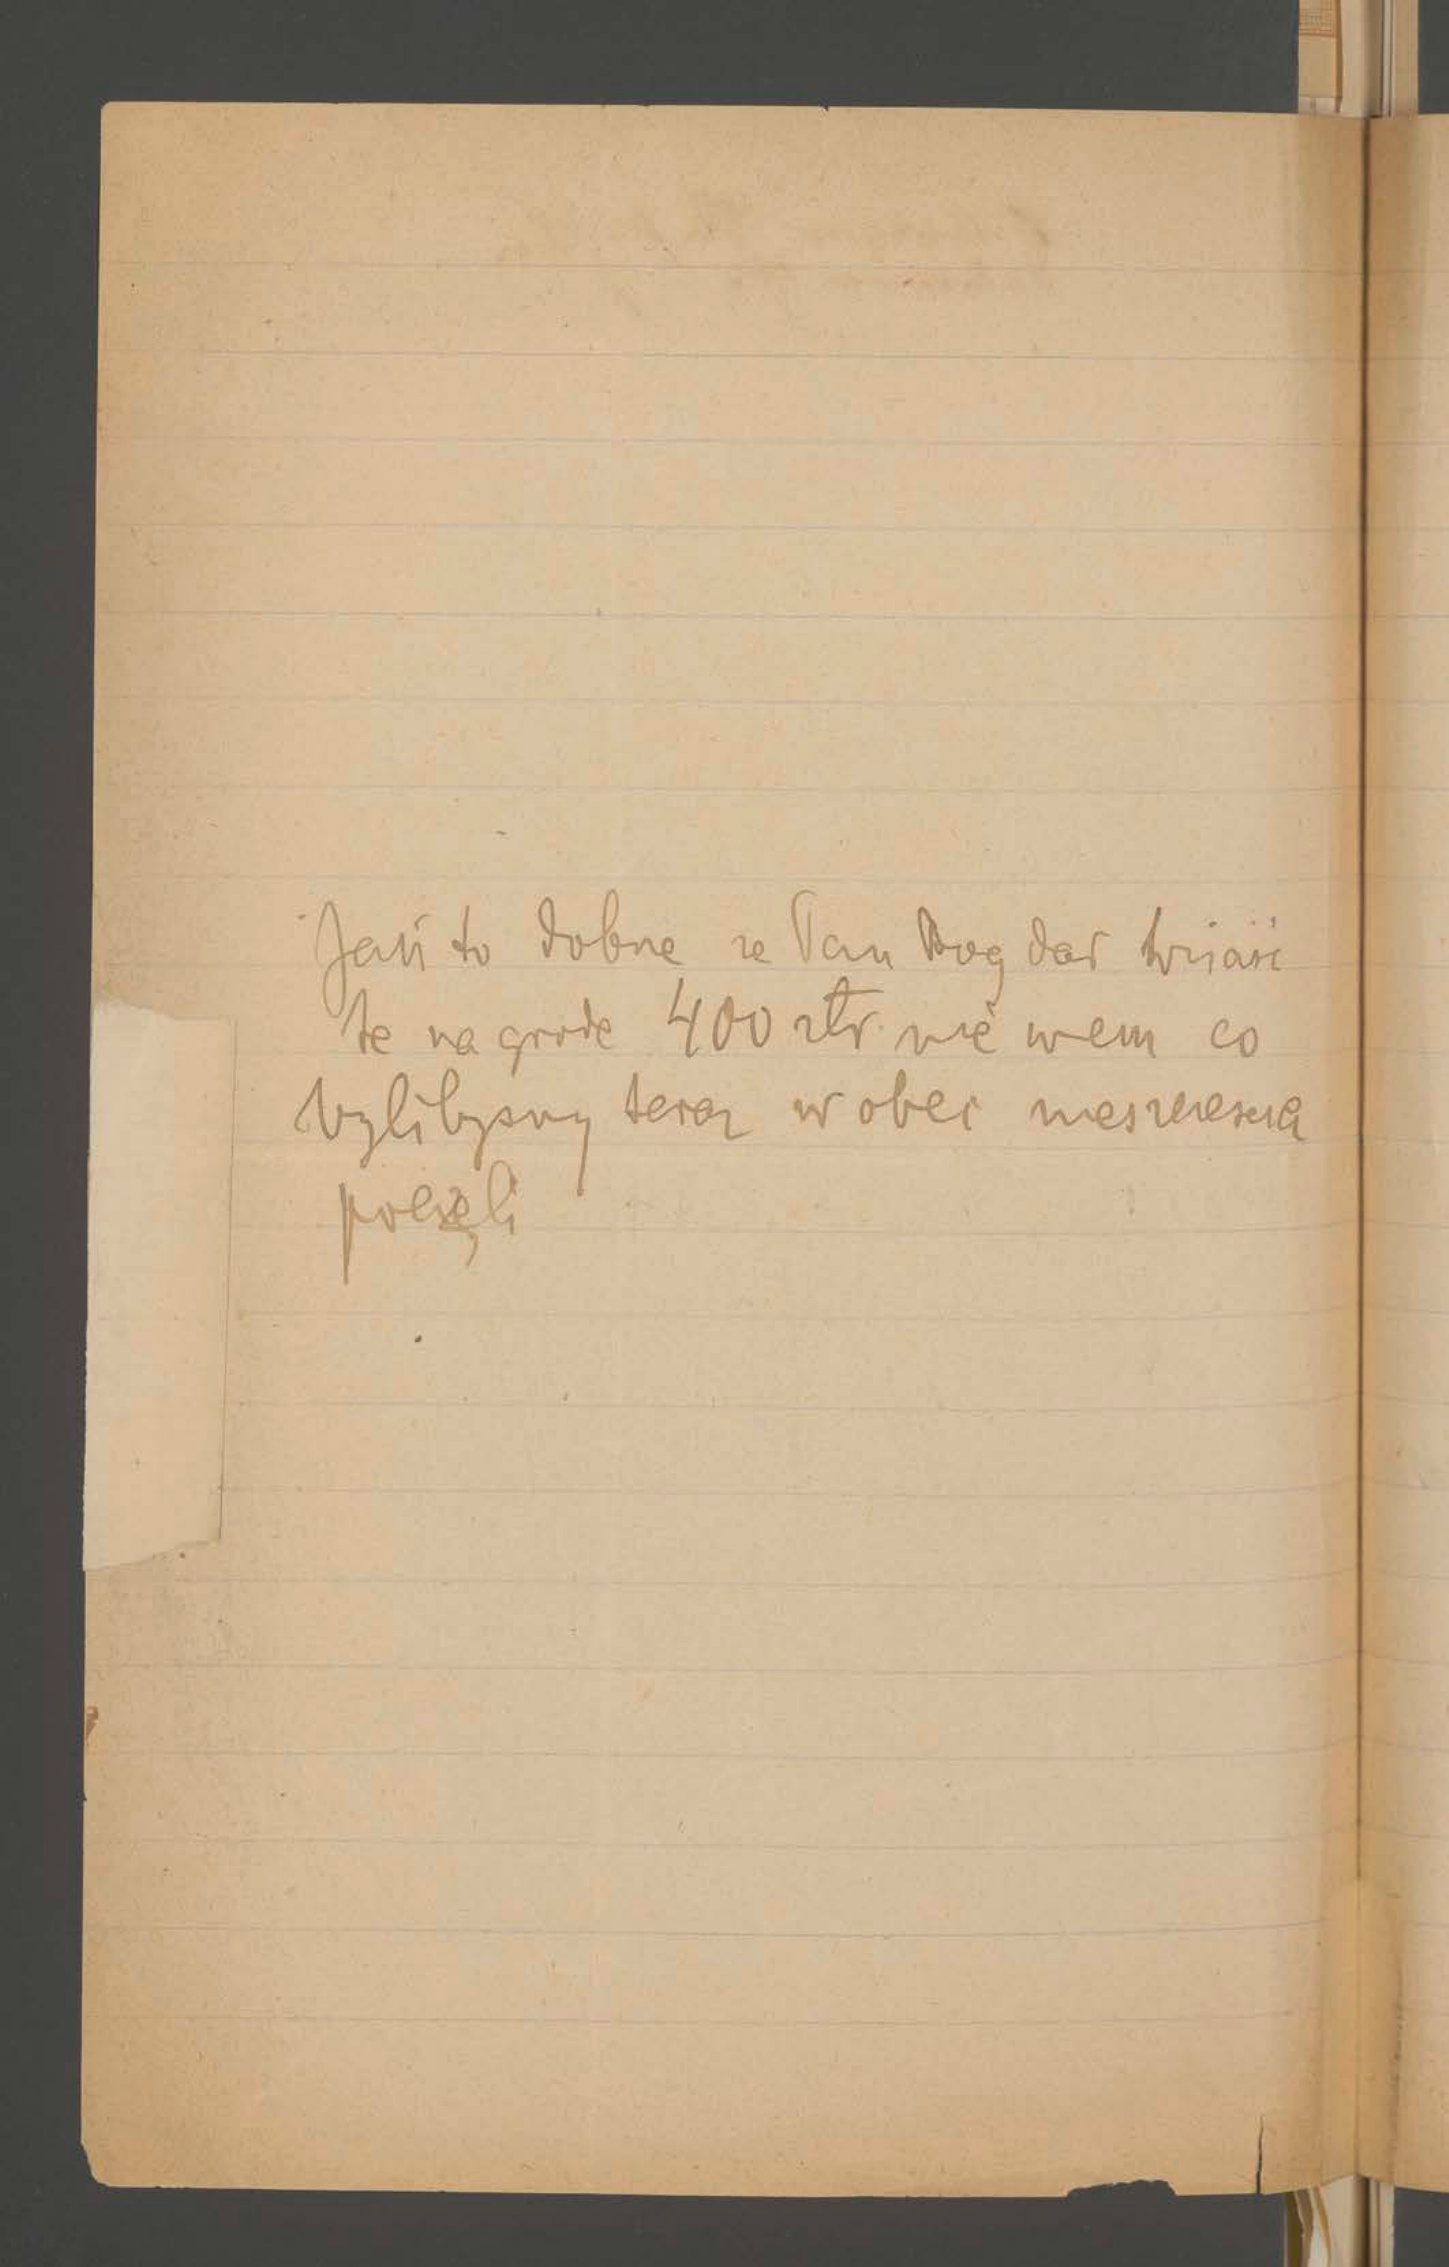 Jak to dobrze ze Pan Bog dał wziaść
te nagrode 400 złr. nie wem co
bylibysmy teraz wobec nieszczescia
poczęli